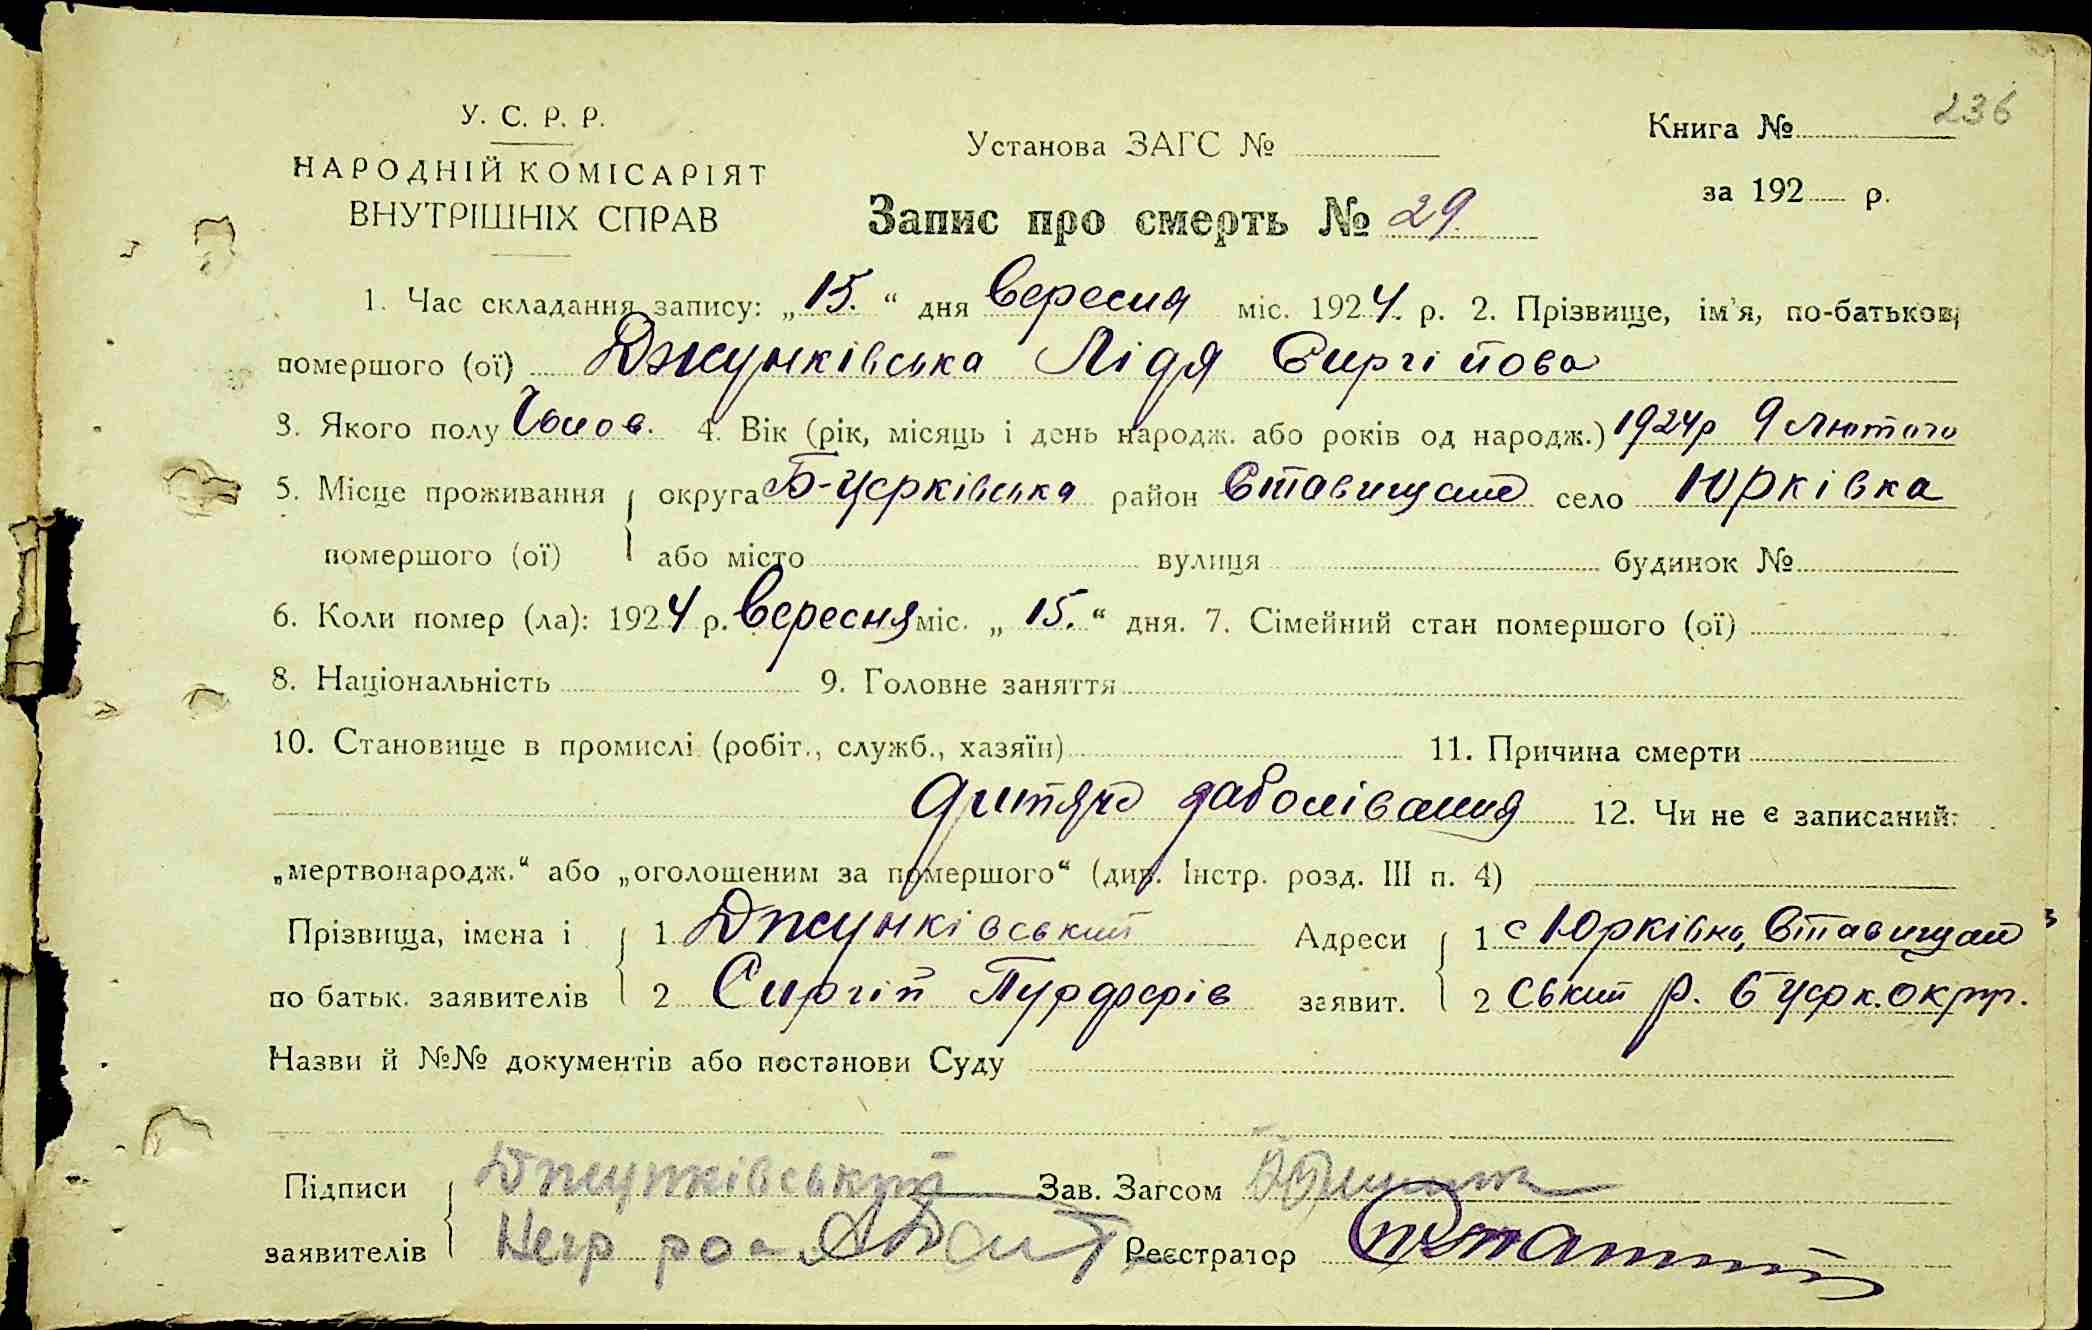 236
У. С. Р. Р.
НАРОДНІЙ КОМІСАРІЯТ
ВНУТРІШНІХ СПРАВ
Установа ЗАГС №
Книга №
за 192 р.
Запис про смерть № 29.
1. Час складання запису: „15.“ дня Вересня міс. 1924. р. 2. Прізвище, ім'я, по-батькові
помершого (ої) Джунківська Лідя Сиргійова
3. Якого полу Чолов. 4. Вік (рік, місяць і день народж. або років од народж.) 1924р 9 Лютого
5. Місце проживання округа Б-Церківська район Ставищан село Юрківка
помершого (ої) або місто вулиця будинок №
6. Коли помер (ла): 1924 р. Вересня міс. „15.“ дня. 7. Сімейний стан помершого (ої)
8. Національність 9. Головне заняття
10. Становище в промислі (робіт., служб., хазяїн) 11. Причина смерти
дитяче заболівания 12. Чи не є записаний:
„мертвонародж.“ або „оголошеним за помершого“ (див. Інстр. розд. III п. 4)
Прізвища, імена і 1 Джунківський Адреси 1 с Юрківка, Ставищан
по батьк. заявителів 2 Сиргій заявит. 2 ський р. Б Церк. окр.
Назви й №№ документів або постанови Суду
Підписи Джунківський Зав. Загсом
заявителів Реєстратор